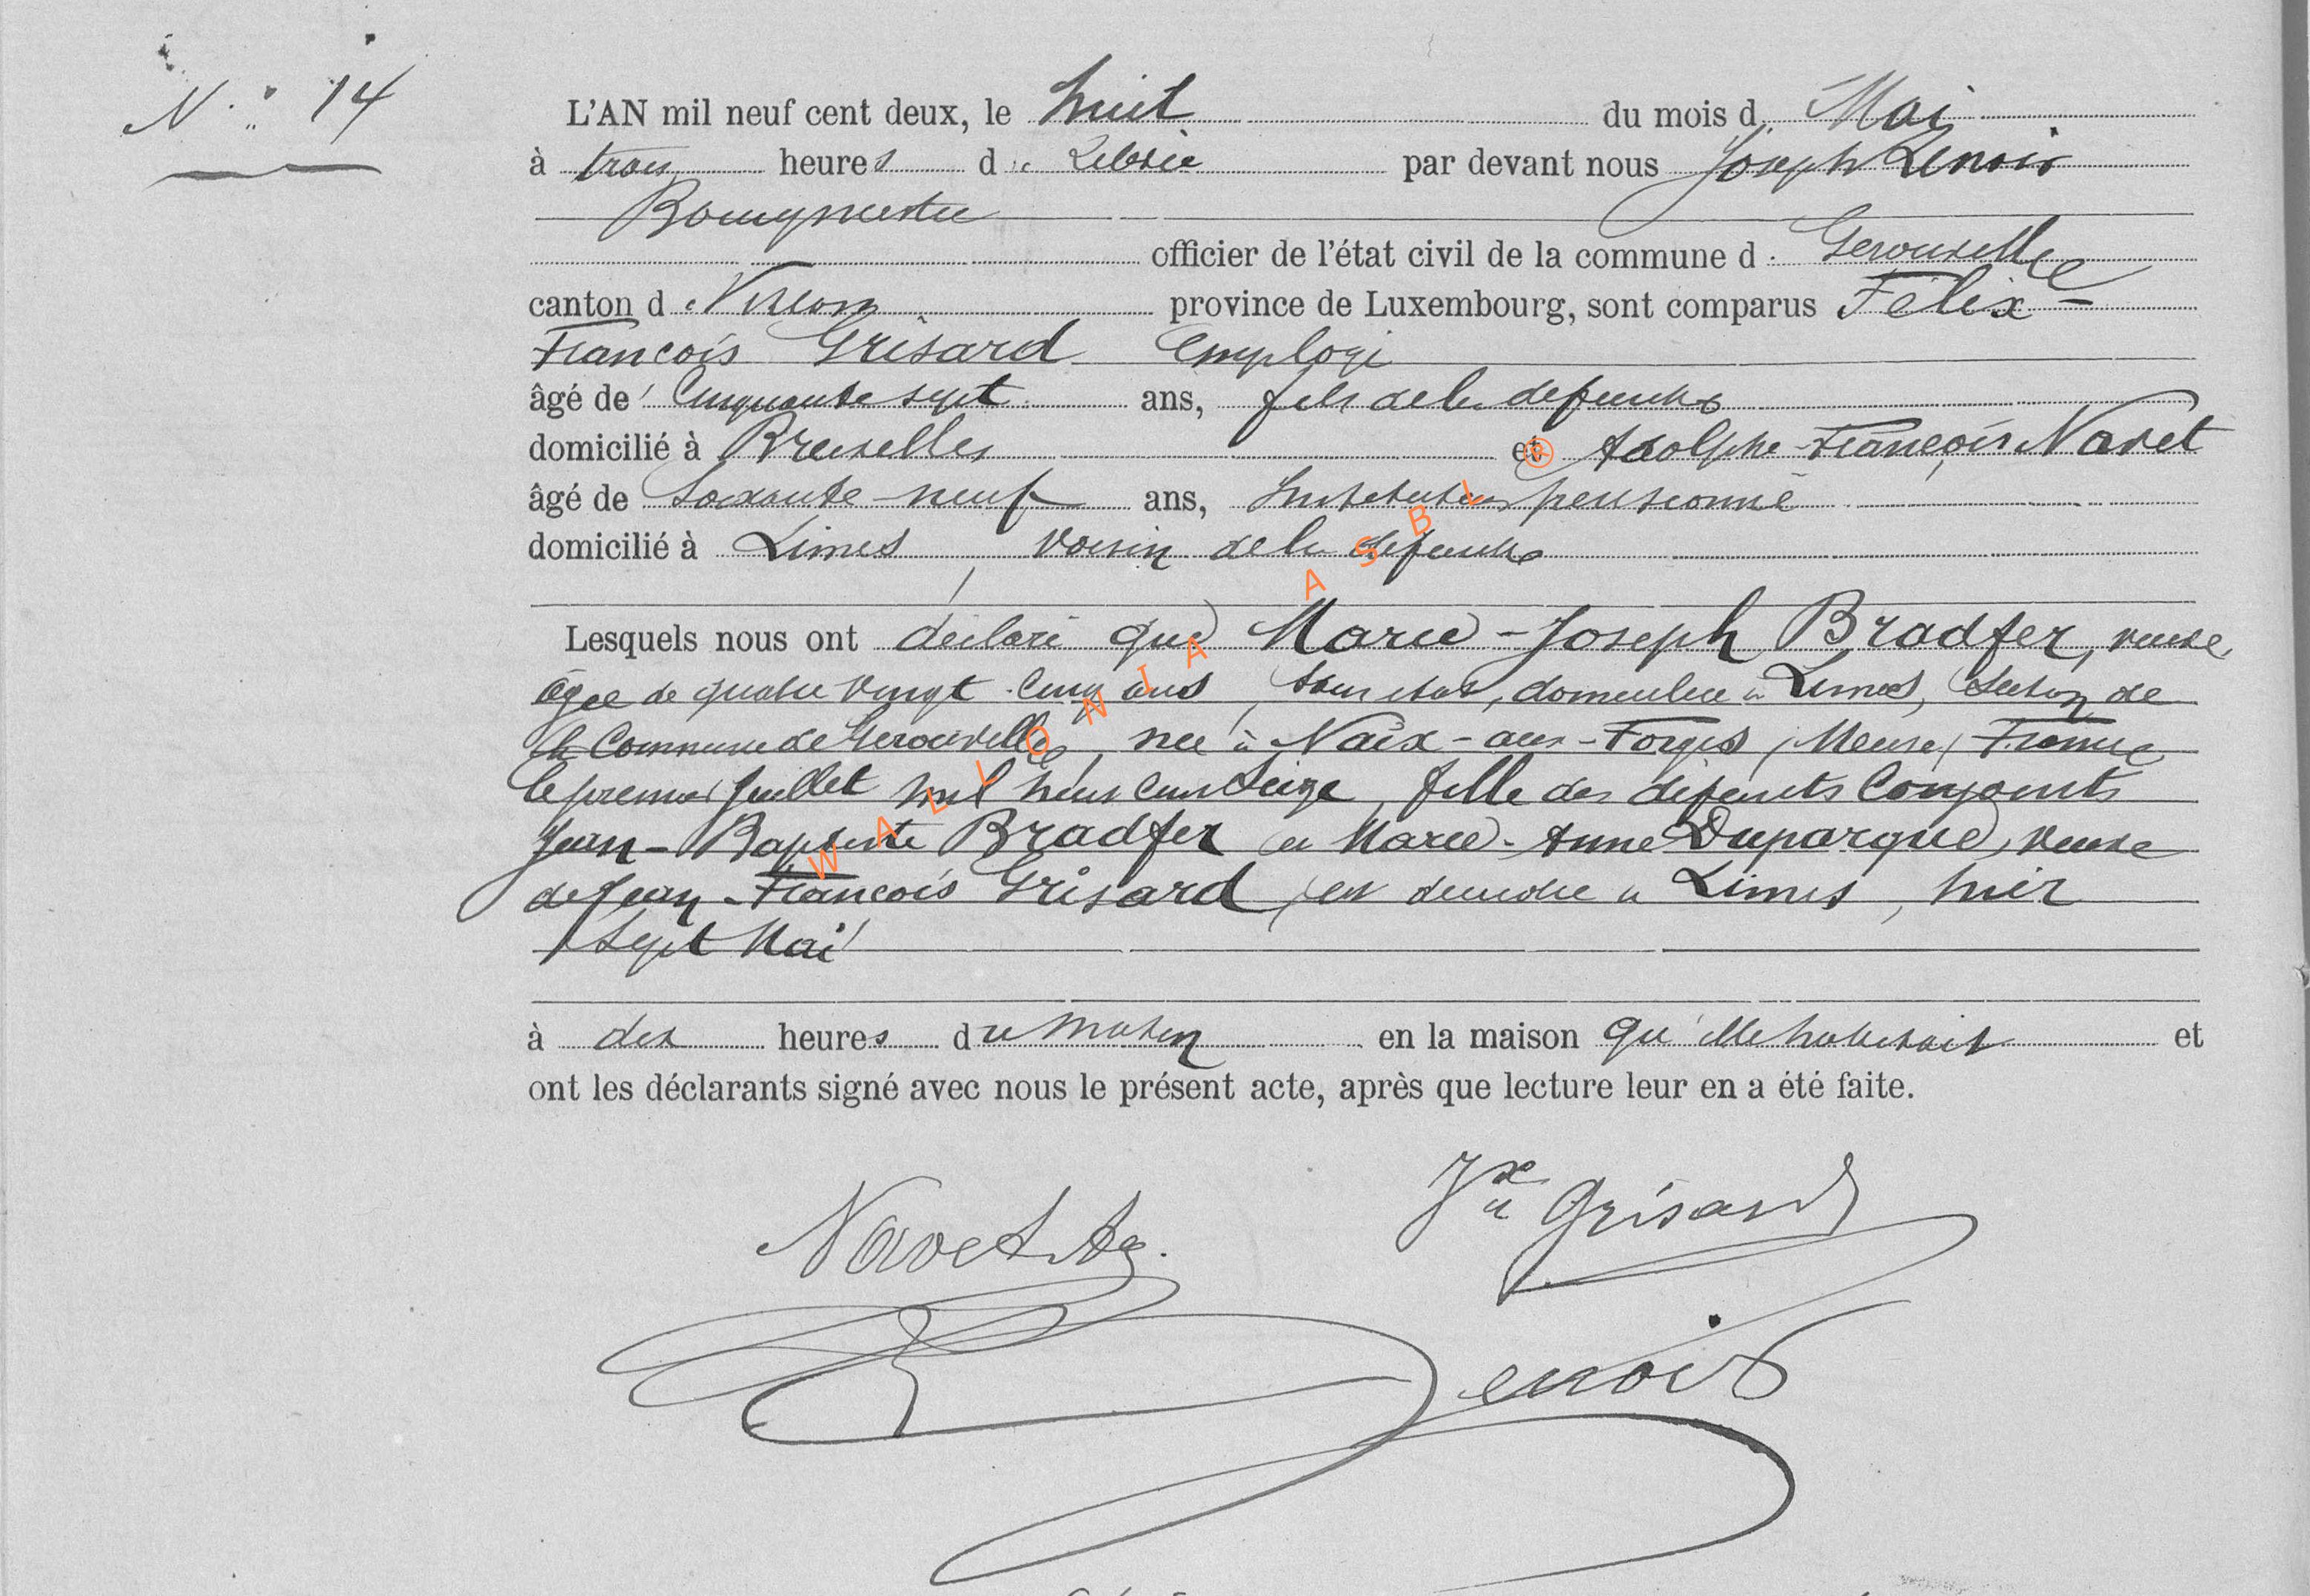 N° 14
L'AN mil neuf cent deux, le huit du mois de Mai
à trois heures de Relevée par devant nous Joseph Lenoir
Bourgmestre
officier de l'état civil de la commune de Gerouvelle
canton de Virton province de Luxembourg, sont comparus Félix
François Grisard Employé
âgé de Cinquante sept ans, fils de la défunte
domicilié à Bruxelles et Adolphe-François Navet
âgé de Soixante-neuf ans, Instituteur pensionné
domicilié à Limes, voisin de la défunte
Lesquels nous ont déclaré que Marie-Joseph Bradfer, veuve,
âgée de quatre vingt-cinq ans, sans état, domiciliée à Limes, Section de
la Commune de Gerouvelle, née à Naix-aux-Forges (Meuse) France
le premier Juillet mil huit cent Seize, fille des défunts Conjoints
Jean-Baptiste Bradfer et Marie-Anne Duparque, veuve
de Jean-François Grisard, est décédée à Limes, hier
Sept Mai
à dix heures du matin en la maison qu'elle habitait et
ont les déclarants signé avec nous le présent acte, après que lecture leur en a été faite.
Navet Ad. Fx Grisard
Lenoir
WALLONIA ASBL ®